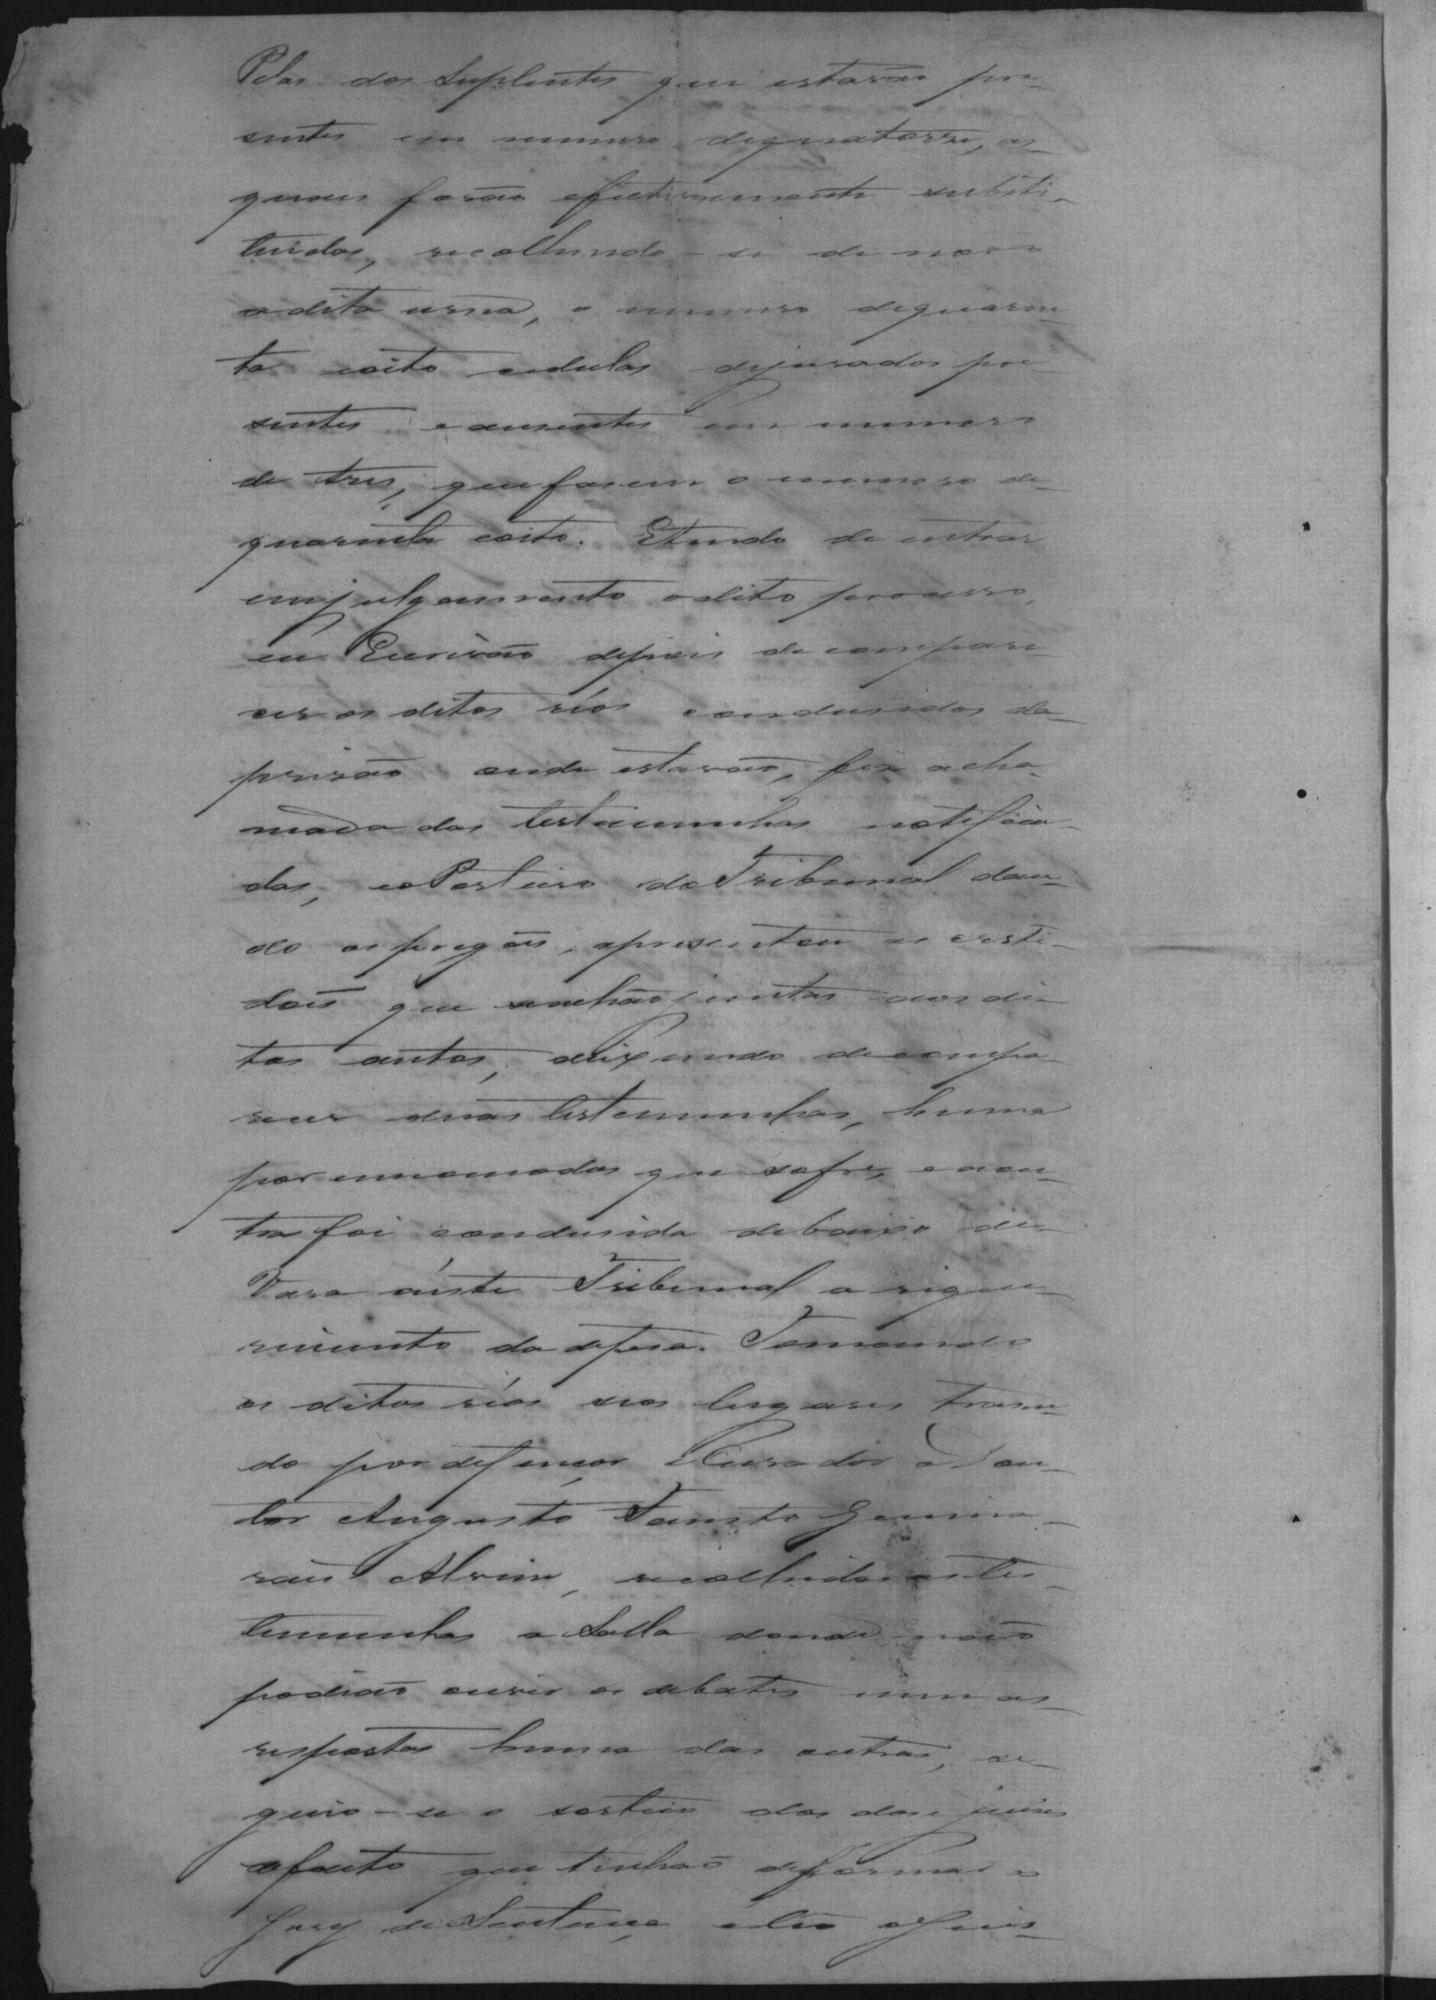 Pelas dos Suplentes que estavão pre-
sentes em numero dequatorse, os
quaes forão efectivamente substi-
tuidos, recolhendo-se de novo
a dita urna, o numero dequaren-
ta eoito cedulas dejurados pre-
sentes e ausentes em numero
de tres, quefasem o numero de
quarenta eoito. Etendo de entrar
emjulgamento odito processo,
eu Escrivão depois de compare-
cer os ditos réos condusidos da
prisão onde estavão, fiz acha-
mada das testemunhas notifica-
das, eoPorteiro doTribunal dan-
do os pregões, apresentou as certi-
dões que seachão juntas aos di-
tos autos, deixando decompa-
recer duas testemunhas, huma
por encomodos que sofre, eaou-
tra foi condusida debaixo de
Vara aéste Tribunal a reque-
rimento da defesa. Tomando
os ditos réos seos lugares trasen-
do por defençor eCurador o Dou-
tor Augusto Fausto Guima-
rães Alvim, recolhidas astes-
temunhas a Salla donde não
podião ouvir os debates nem as
respostas huma das outras, se-
guio-se o sorteio dos dose juises
defacto que tinhão deformar o
Jury de Sentença elêo oJuis